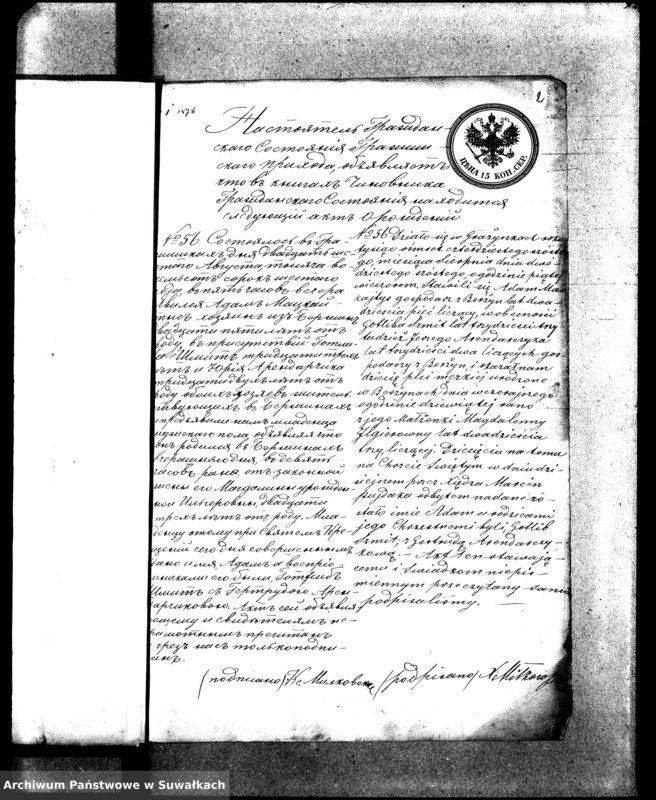 1876
2
Настоятель Граждан-
скаго Состоянія
скаго прихода, объявляетъ
что въ книгахъ Чиновника
Гражданскаго Состоянія находится
слѣдующій актъ о рожденій
ЦѢНА 15 КОП. СЕР.
№ 56. Состоялось въ Гра-
дня двадцать шес-
таго Августа, тысяча во-
сорокъ шестаго
въ пять часовъ вечера
явился Адамъ Мацкай-
хозяинъ изъ
двадцати пяти лѣтъ отъ
роду, въ присутствіи Готли-
Шмитъ тридцати трехъ
лѣтъ и Юрія Арендарчика
тридцати двухъ лѣтъ отъ
роду обоихъ хозяевъ житель-
ствующихъ въ
предъявилъ намъ младенца
мужескаго пола, объявляя что
онъ родился въ
вчерашняго дня, въ девять
часовъ рано, отъ законной
жены его Магдалины урожден-
ной двадцати
трехъ лѣтъ отъ роду. Мла-
денцу этому при Святомъ Кре-
щеніи сего дня совершенномъ
дано имя Адамъ а воспріе-
мниками его были, Готлибъ
Шмитъ съ Гертрудою Арен-
дарчиковою. Актъ сей объявля-
ющему и свидѣтелямъ не-
грамотнымъ прочитанъ
чрезъ насъ только подпи-
санъ.
(подписано) Кс. Милковски
№ 56 Działo się w
tysiąc ośmset czterdziestego szóste-
go, miesiąca Sierpnia dnia dwu-
dziestego szóstego o godzinie piątej
wieczorem, Stawili się Adam Mac-
kajtys gospodarz z Berżyn lat dwa-
dzieścia pięć liczący, w obecności
Gotliba Szmit lat trzydzieści trzy
tudzież Jerzego Arendarczyka
lat trzydzieści dwa liczących gos-
podarzy z Berżyn, i okazał nam
dziecię płci męzkiej urodzone
w Berżynach dnia wczorajszego
o godzinie dziewiątej rano
z jego Małżonki Magdaleny
lat dwadzieścia
trzy liczącej. Dziecięciu na temu
na Chrzcie Świętym w dniu dzi-
siejszem przez Xiędza Marcin
odbytem nadane zo-
stało imie Adam a rodzicami
jego Chrzestnemi byli, Gotlib
Szmit, z Gertrudą Arendarczy-
kową. — Akt ten stawają-
cemu i świadkom niepiś-
miennym przeczytany sami
podpisaliśmy. —
(podpisano)
Archiwum Państwowe w Suwałkach